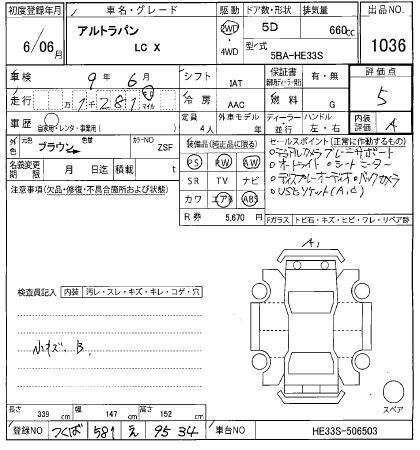 初度登録年月 車名・グレード 駆動 ドア数・形状 排気量 出品NO.
6/06月 アルトラパン LC X 2WD・4WD 5D 660cc 1036
型式 5BA-HE33S
車検 9年6月 シフト 1AT 保証書 有・無 評価点
走行 万 1281 マイル 冷房 AAC 燃料 G 5
車歴 自家用・レンタ・事業用( ) 定員 4人 外車モデル 年 ディーラー・並行 ハンドル 左・右 内装評価 A
外色 元色 ブラウン 色替 カラーNO ZSF 装備品(純正品に限る) セールスポイント(正常に作動するもの)
名義変更期限 月 日迄 積載 t PS PW AW
注意事項(欠品・修復・不具合箇所および状態) SR TV ナビ
カワ エアB ABS
R券 5,670円 Fガラス トビ石・キズ・ヒビ・ワレ・リペア跡
・デュアルカメラブレーキサポート
・オートライト・シートヒーター
・ディスプレーオーディオ・バックカメラ
・USBソケット(A,C)
A1
検査員記入 内装 汚レ・スレ・キズ・キレ・コゲ・穴
小キズ. B.
スペア
長さ 339cm 幅 147cm 高さ 152cm
登録NO つくば 581 え 95 34 車台NO HE33S-506503